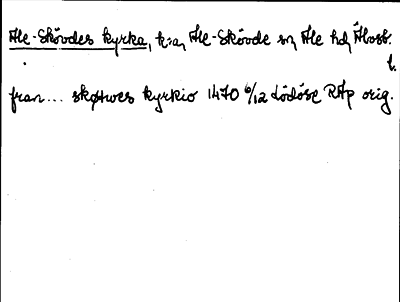 Ale-Skövdes kyrka, k:a, Ale-Skövde sn, Ale hd, Älvsb. l.
fran... skøtwes kyrkio 1470 6/12 Lödöse RAp orig.